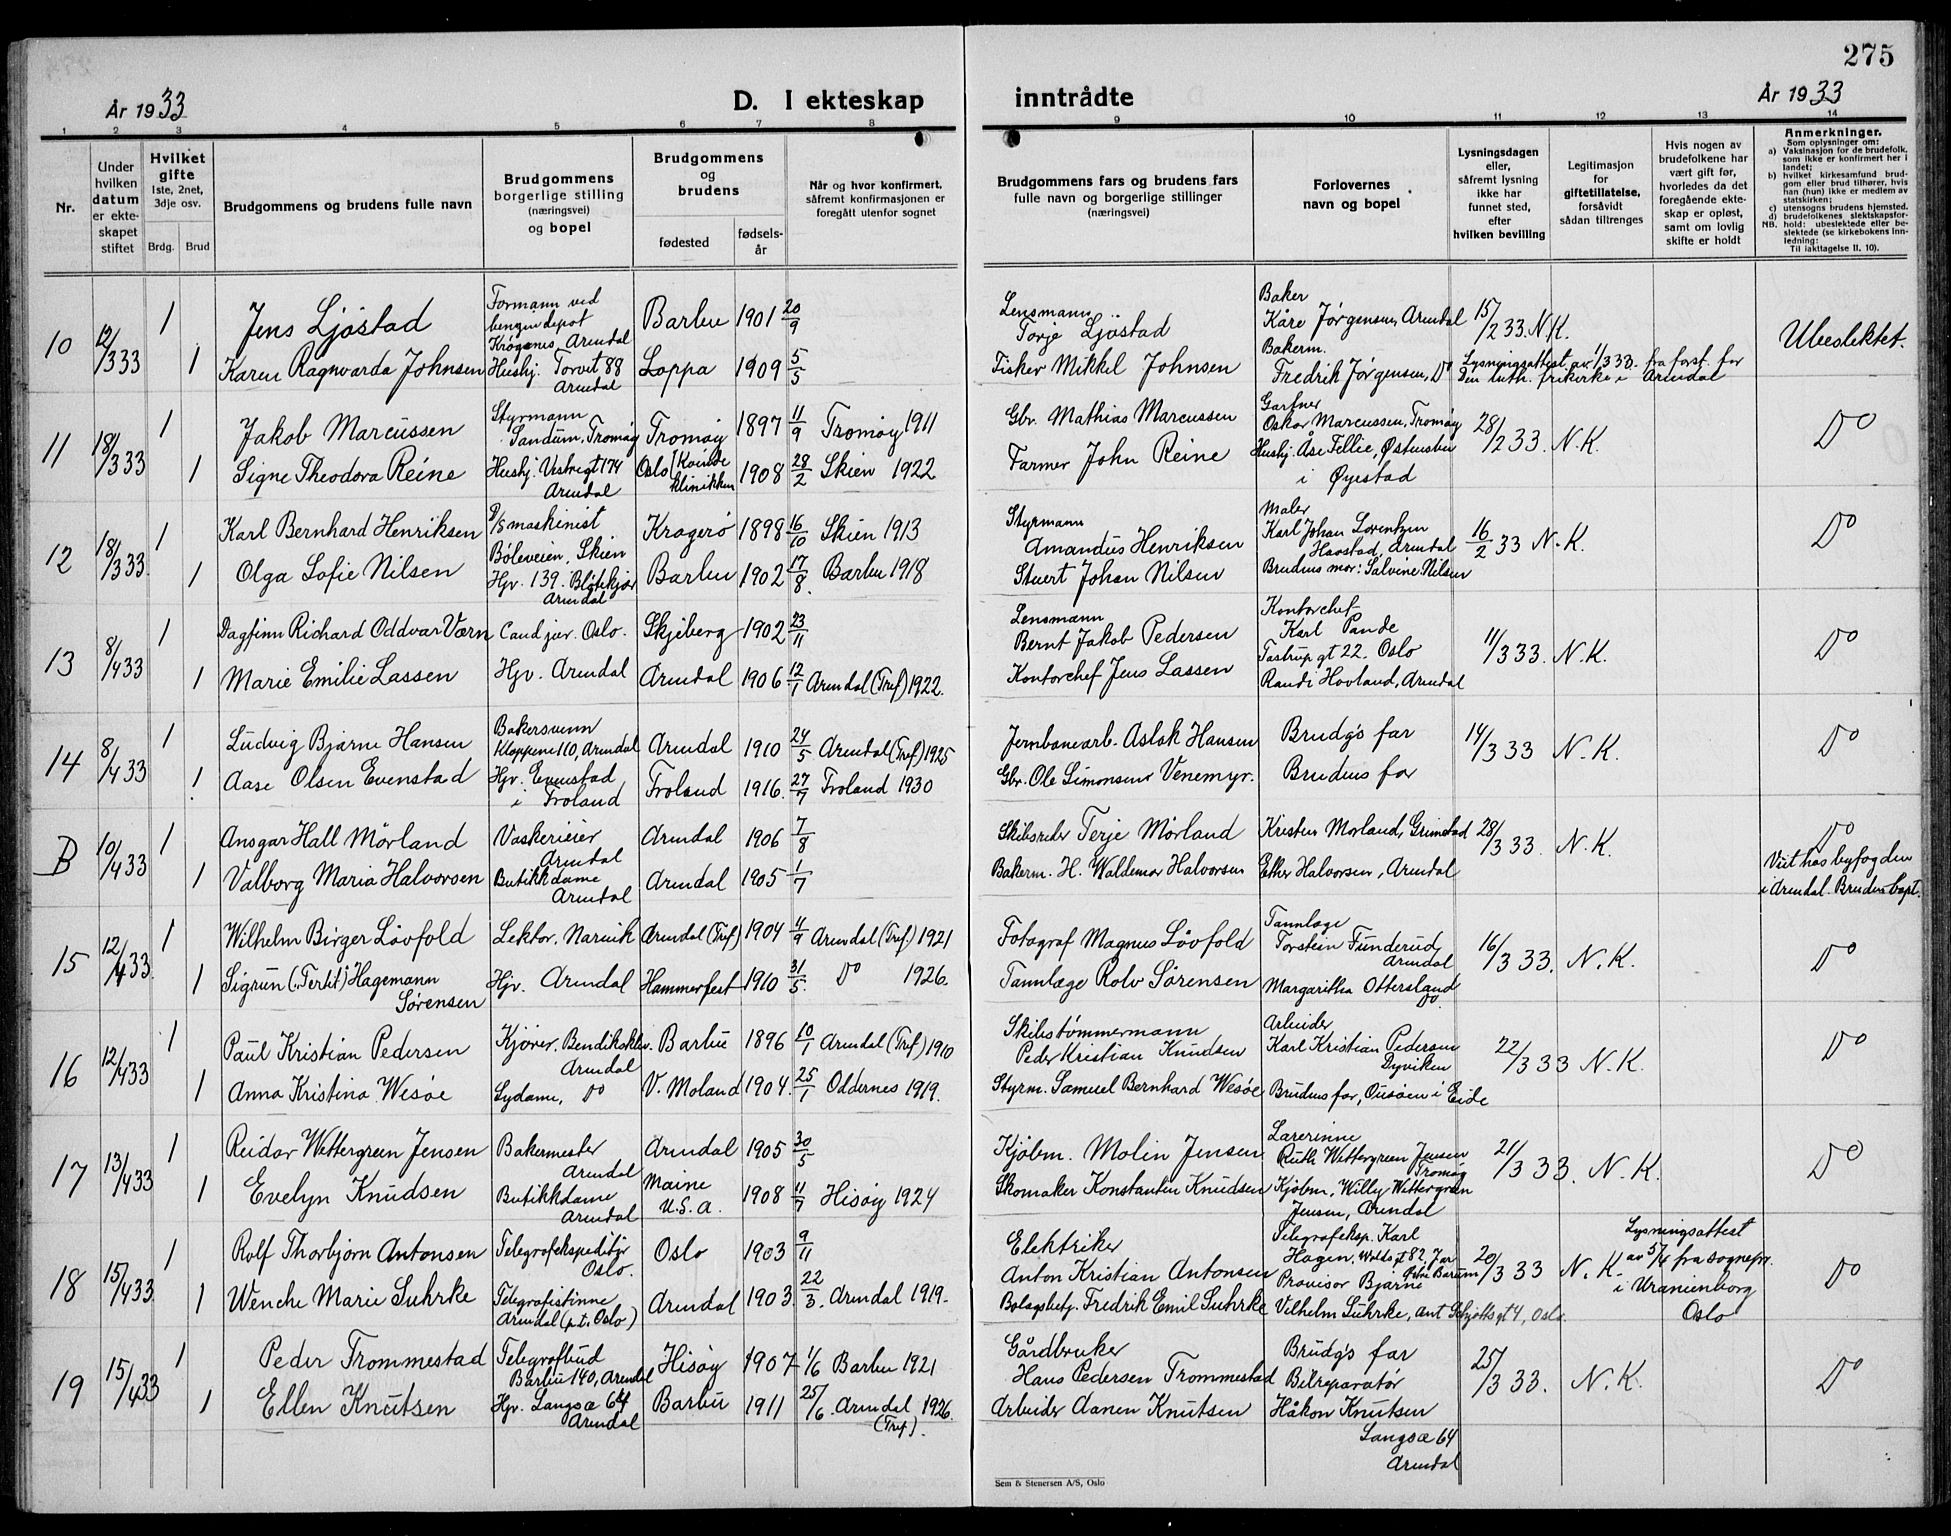 275
År 1933
D. I ekteskap inntrådte
År 1933
1 2 3 4 5 6 7 8 9 10 11 12 13 14
Nr.
Under hvilken datum er ekteskapet stiftet
Hvilket gifte
1ste, 2net, 3dje osv.
Brdg. Brud
Brudgommens og brudens fulle navn
Brudgommens borgerlige stilling (næringsvei) og bopel
Brudgommens og brudens
fødested
fødselsår
Når og hvor konfirmert, såfremt konfirmasjonen er foregått utenfor sognet
Brudgommens fars og brudens fars fulle navn og borgerlige stillinger (næringsvei)
Forlovernes navn og bopel
Lysningsdagen eller, såfremt lysning ikke har funnet sted, efter hvilken bevilling
Legitimasjon for giftetillatelse, forsåvidt sådan tiltrenges
Hvis nogen av brudefolkene har vært gift før, hvorledes da det foregående ekteskap er opløst, samt om lovlig skifte er holdt
Anmerkninger.
Som oplysninger om:
a) Vaksinasjon for de brudefolk, som ikke er konfirmert her i landet;
b) hvilket kirkesamfund brudgom eller brud tilhører, hvis han (hun) ikke er medlem av statskirken;
c) utensogns brudens hjemsted.
d) brudefolkenes slektskapsforhold: ubeslektede eller beslektede (se kirkebokens innledning:
NB. Til iakttagelse II. 10).
10 12/3 33 1 Jens Ljøstad Formann ved bensindepot Krøgenes, Arendal Barbu 1901 20/9 Lensmann Torje Ljøstad Baker Kåre Jørgensen, Arendal 15/2 33. N.K. Ubeslektet.
1 Karen Ragnvarda Johnsen Hushj. Torvet 88 Arendal Loppa 1909 5/5 Fisker Mikkel Johnsen Bakerm. Fredrik Jørgensen, Do Lysningsattest av 1/3 33. fra forst. for Den luth. frikirke i Arendal
11 18/3 33 1 Jakob Marcussen Styrmann Sandum, Tromøy Tromøy 1897 11/9 Tromøy 1911 Gbr. Mathias Marcussen Gartner Oskar Marcussen, Tromøy 28/2 33. N.K. Do
1 Signe Theodora Reine Hushj. Vestregt 174 Arendal Oslo (Kvinneklinikken 1908 28/2 Skien 1922 Farmer John Reine Hushj. Åse Tellie, Østensbu i Øyestad
12 18/3 33. 1 Karl Bernhard Henriksen D/S maskinist Bøleveien, Skien Kragerø 1898 16/10 Skien 1913 Styrmann Amandus Henriksen Maler Karl Johan Lorentzen Havstad, Arendal 16/2 33 N.K. Do
1 Olga Sofie Nilsen Hgv. 139. Bløtekjær Arendal Barbu 1902 17/8. Barbu 1918 Stuert Johan Nilsen Brudens mor: Salvine Nilsen
13 8/4 33 1 Dagfinn Richard Oddvar Værn Cand jur. Oslo. Skjeberg 1902 23/11 Lensmann Bernt Jakob Pedersen Kontorchef Karl Pande Tostrup gt 22. Oslo 11/3 33. N.K. Do
1 Marie Emilie Lassen Hgv. Arendal Arendal 1906 12/1 Arendal (Tref) 1922. Kontorchef Jens Lassen Randi Hovland, Arendal
14 8/4 33 1 Ludvig Bjarne Hansen Bakersvenn Kloppene 110, Arendal Arendal 1910 24/5 Arendal (Tref) 1925 Jernbanearb. Aslak Hansen Brudg's far 14/3 33 N.K. Do
1 Aase Olsen Evenstad Hgv. Evenstad i Froland Froland 1916. 27/7 Froland 1930 Gbr. Ole Simonsen Venemyr. Brudens far
B 10/4 33 1 Ansgar Hall Mørland Vaskerieier Arendal Arendal 1906 7/8 Skibsreder Terje Mørland Kristen Mørland, Grimstad 28/3 33. N.K. Do
1 Valborg Maria Halvorsen Butikkdame Arendal Arendal 1905 1/7 Bakerm. H. Waldemar Halvorsen Esther Halvorsen, Arendal Viet hos byfogden i Arendal. Bruden bapt.
15 12/4 33 1 Wilhelm Birger Løvfold Lektor. Narvik Arendal (Tref) 1904 11/9 Arendal (Tref.) 1921 Fotograf Magnus Løvfold Tannlæge Torstein Funderud, Arendal 16/3 33. N.K. Do
1 Sigrun ("Tertit") Hagemann Sørensen Hgv. Arendal Hammerfest 1910 31/5. Do 1926. Tannlæge Rolv Sørensen Margaritha Ottersland Do
16 12/4 33 1 Paul Kristian Pedersen Kjører. Bendiksklev. Arendal Barbu 1896 10/1 Arendal (Tref) 1910 Skibstømmermann Peder Kristian Knudsen Arbeider Karl Kristian Pedersen Dyviken 22/3 33 N.K. Do
1 Anna Kristina Wesøe Sydame, Do V. Moland 1904. 25/1 Oddernes 1919. Styrm. Samuel Bernhard Wesøe Brudens far, i Eide
17 13/4 33 1 Reidar Wettergreen Jensen Bakermester Arendal Arendal 1905 30/5 Kjøbm. Molin Jensen Lærerinne Ruth Wettergreen Jensen Tromøy 21/3 33. N.K. Do
1 Evelyn Knudsen Butikkdame Arendal Maine U.S.A. 1908 11/7 Hisøy 1924 Skomaker Konstanten Knudsen Kjøbm. Willy Wettergren Jensen, Arendal
18 15/4 33 1 Rolf Thorbjørn Antonsen Telegrafekspeditør Oslo. Oslo 1903 9/11 Elektriker Anton Kristian Antonsen Telegrafeksp. Karl Hagen, 82, Jar Bærum 20/3 33 N.K. Lysningsattest av 5/4 fra sognepr. i Uranienborg Oslo Do
1 Wenche Marie Suhrke Telegrafistinne Arendal (p.t. Oslo) Arendal 1903 22/3. Arendal 1919. Bolagsbetj. Fredrik Emil Suhrke Provisor Bjarne Vilhelm Suhrke, Ant Schjøttsgt 4, Oslo.
19 15/4 33 1 Peder Trommestad Telegrafbud Barbu 140, Arendal Hisøy 1907 1/6 Barbu 1921 Gårdbruker Hans Pedersen Trommestad Brudg's far 25/3 33. N.K. Do
1 Ellen Knutsen Hgv. Langsæ 64 Arendal Barbu 1911 25/6. Arendal 1926. (Tref). Arbeider Aanen Knutsen Bilreparatør Håkon Knutsen Langsæ 64 Arendal
Sem & Stenersen A/S, Oslo